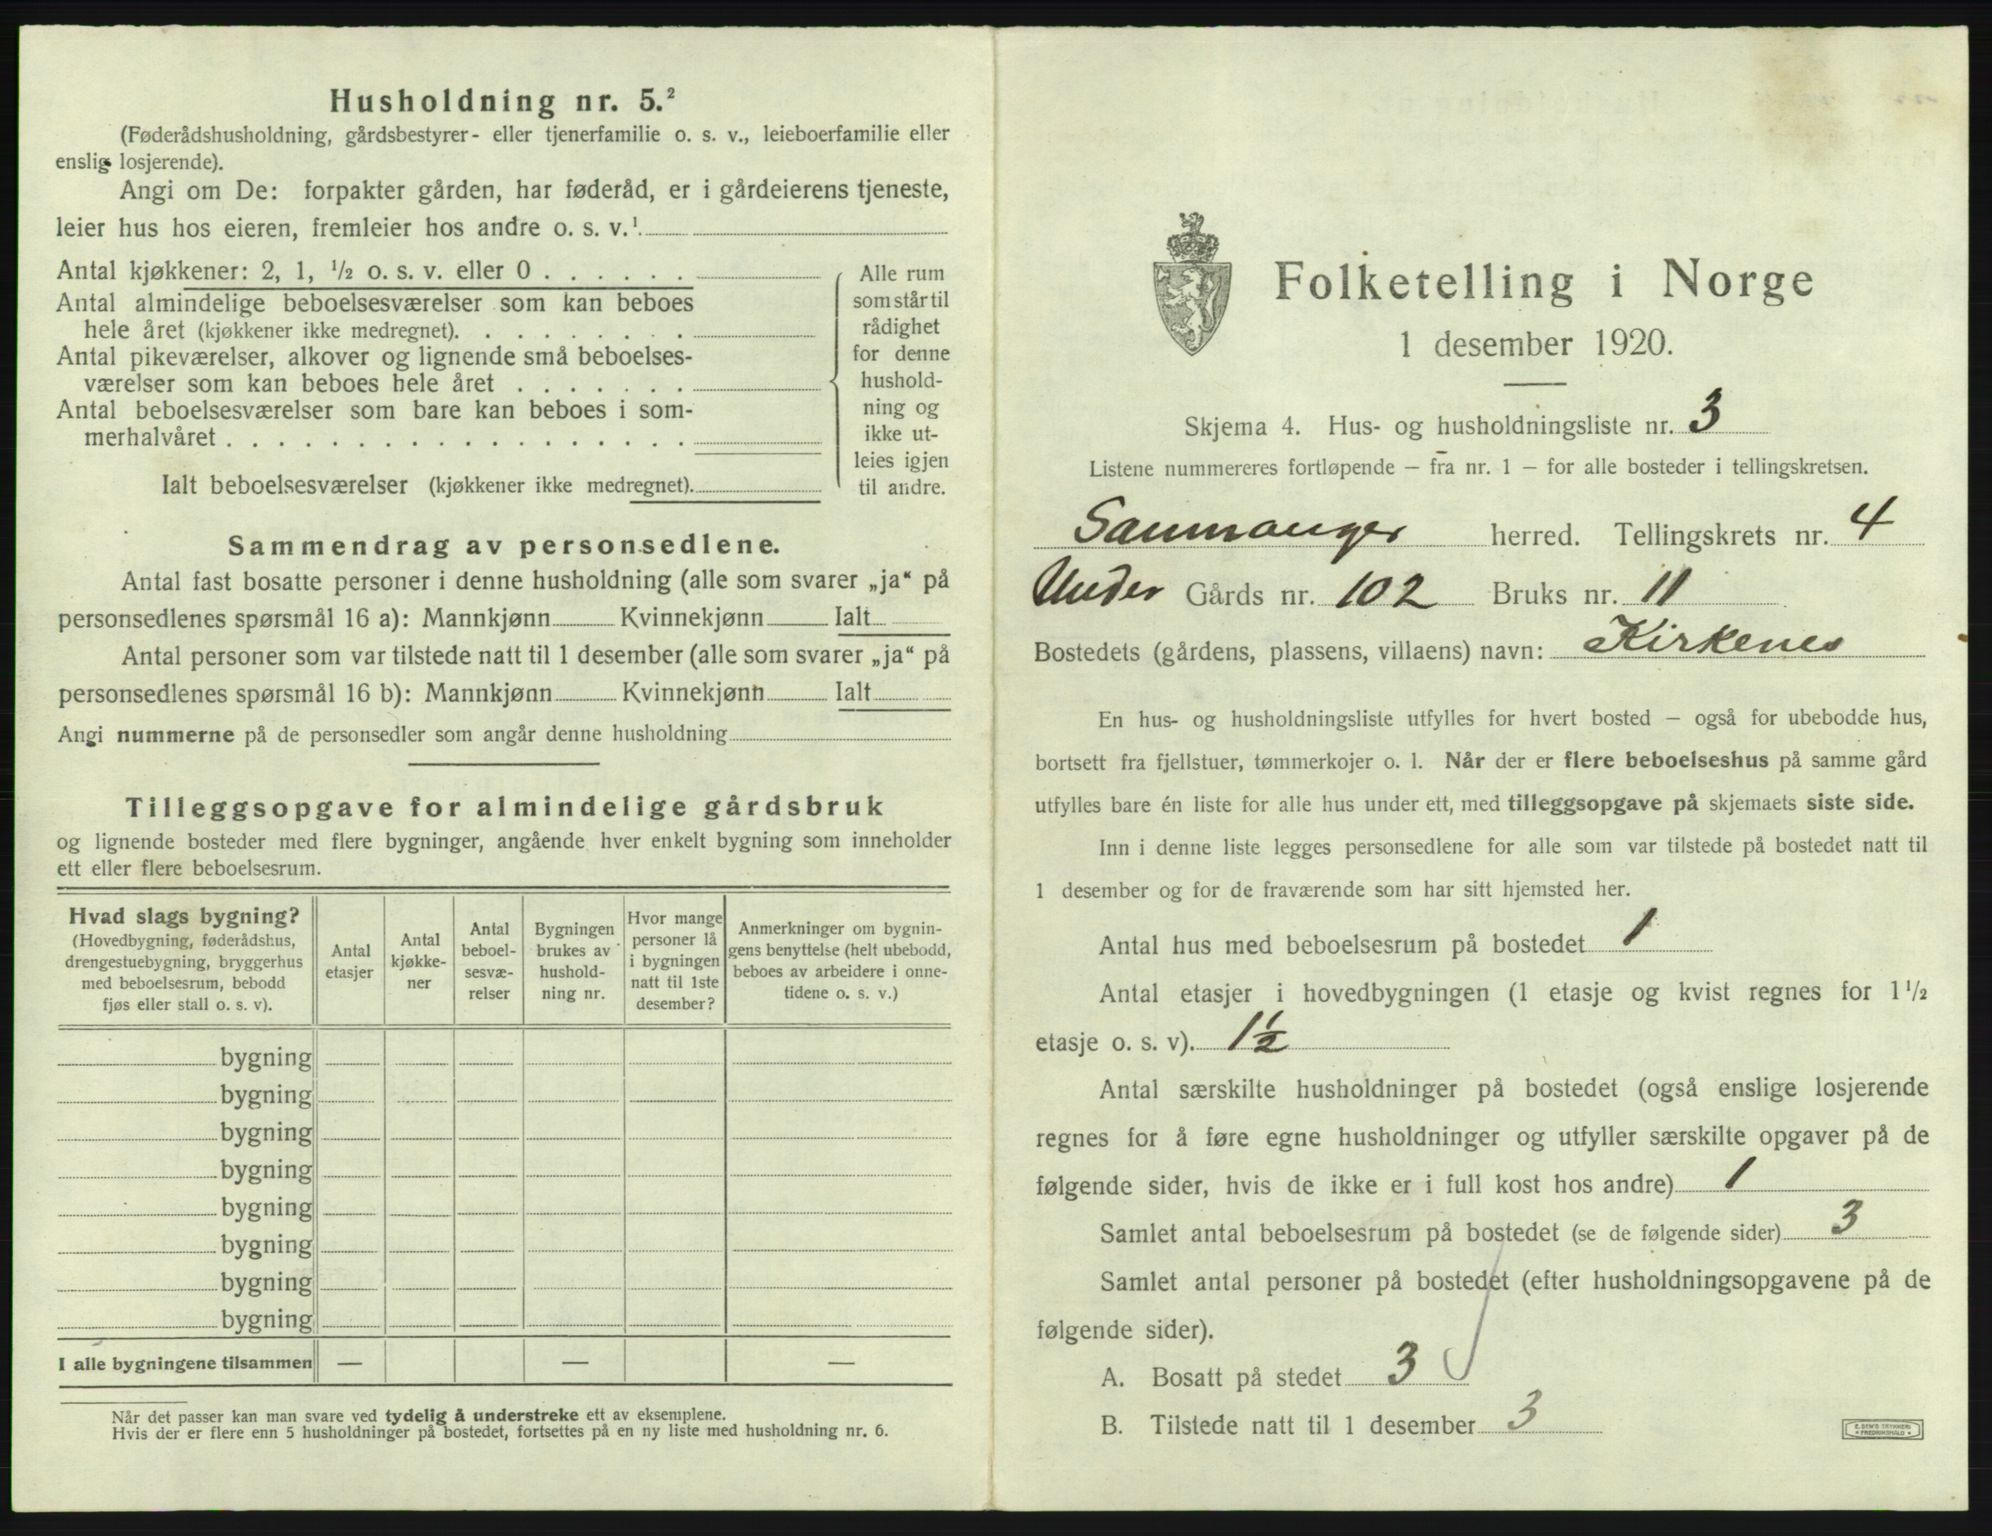 Husholdning nr. 5.²
(Føderådshusholdning, gårdsbestyrer- eller tjenerfamilie o. s. v., leieboerfamilie eller
enslig losjerende).
Angi om De: forpakter gården, har føderåd, er i gårdeierens tjeneste,
leier hus hos eieren, fremleier hos andre o. s. v.¹
Antal kjøkkener: 2, 1, ½ o. s. v. eller 0 . . . . . .
Antal almindelige beboelsesværelser som kan beboes
hele året (kjøkkener ikke medregnet). . . . . . . . .
Antal pikeværelser, alkover og lignende små beboelses-
værelser som kan beboes hele året . . . . . . .
Antal beboelsesværelser som bare kan beboes i som-
merhalvåret . . . . . . . . . . . . . . . . . .
Ialt beboelsesværelser (kjøkkener ikke medregnet).
Alle rum
som står til
rådighet
for denne
hushold-
ning og
ikke ut-
leies igjen
til andre.
Sammendrag av personsedlene.
Antal fast bosatte personer i denne husholdning (alle som svarer „ja“ på
personsedlenes spørsmål 16 a): Mannkjønn Kvinnekjønn Ialt
Antal personer som var tilstede natt til 1 desember (alle som svarer „ja“ på
personsedlenes spørsmål 16 b): Mannkjønn Kvinnekjønn Ialt
Angi nummerne på de personsedler som angår denne husholdning
Tilleggsopgave for almindelige gårdsbruk
og lignende bosteder med flere bygninger, angående hver enkelt bygning som inneholder
ett eller flere beboelsesrum.
Hvad slags bygning?
(Hovedbygning, føderådshus,
drengestuebygning, bryggerhus
med beboelsesrum, bebodd
fjøs eller stall o. s. v).
Antal
etasjer
Antal
kjøkke-
ner
Antal
beboel-
sesvæ-
relser
Bygningen
brukes av
hushold-
ning nr.
Hvor mange
personer lå
i bygningen
natt til 1ste
desember?
Anmerkninger om bygnin-
gens benyttelse (helt ubebodd,
beboes av arbeidere i onne-
tidene o. s. v.)
bygning
bygning
bygning
bygning
bygning
bygning
bygning
bygning
I alle bygningene tilsammen — — —
Når det passer kan man svare ved tydelig å understreke ett av eksemplene.
Hvis der er flere enn 5 husholdninger på bostedet, fortsettes på en ny liste med husholdning nr. 6.
Folketelling i Norge
1 desember 1920.
Skjema 4. Hus- og husholdningsliste nr. 3
Listene nummereres fortløpende — fra nr. 1 — for alle bosteder i tellingskretsen.
Samnanger herred. Tellingskrets nr. 4
Under Gårds nr. 102 Bruks nr. 11
Bostedets (gårdens, plassens, villaens) navn: Kirkenes
En hus- og husholdningsliste utfylles for hvert bosted — også for ubebodde hus,
bortsett fra fjellstuer, tømmerkojer o. l. Når der er flere beboelseshus på samme gård
utfylles bare én liste for alle hus under ett, med tilleggsopgave på skjemaets siste side.
Inn i denne liste legges personsedlene for alle som var tilstede på bostedet natt til
1 desember og for de fraværende som har sitt hjemsted her.
Antal hus med beboelsesrum på bostedet 1
Antal etasjer i hovedbygningen (1 etasje og kvist regnes for 1½
etasje o. s. v). 1½
Antal særskilte husholdninger på bostedet (også enslige losjerende
regnes for å føre egne husholdninger og utfyller særskilte opgaver på de
følgende sider, hvis de ikke er i full kost hos andre) 1
Samlet antal beboelsesrum på bostedet (se de følgende sider) 3
Samlet antal personer på bostedet (efter husholdningsopgavene på de
følgende sider).
A. Bosatt på stedet 3
B. Tilstede natt til 1 desember 3
E. SEM'S TRYKKERI
FREDRIKSHALD